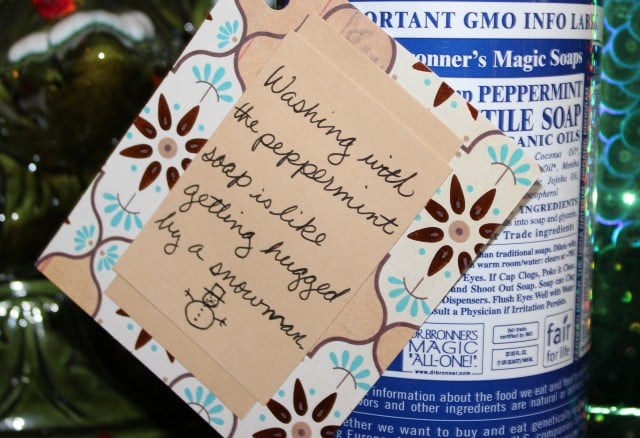 Washing with
the peppermint
soap is like
getting hugged
by a snowman.
PORTANT GMO INFO LAB
Bronner's Magic Soaps
PEPPERMINT
TILE SOAP
GANIC OILS
Coconut Oil*
Oil*, Mentha
Jojoba Oil,
opherol
INGREDIENTS
into soap and glycerin
Trade ingredients
than traditional soaps. Dilute with
warm room/water: clears at
Eyes. If Cap Clogs, Poke it Clear
and Shoot Out Soap. Soap can Clog
Dispensers. Flush Eyes Well with Water
sult a Physician if Irritation Persists.
DR. BRONNER'S
MAGIC
"ALL-ONE!"
www.drbronner.com
Fair trade
certified by IMO
32 US FL OZ.
(1 US QUART) 946 ML
fair
for life
information about the food we eat and feed
vors and other ingredients are natural or
ther we want to buy and eat genetically